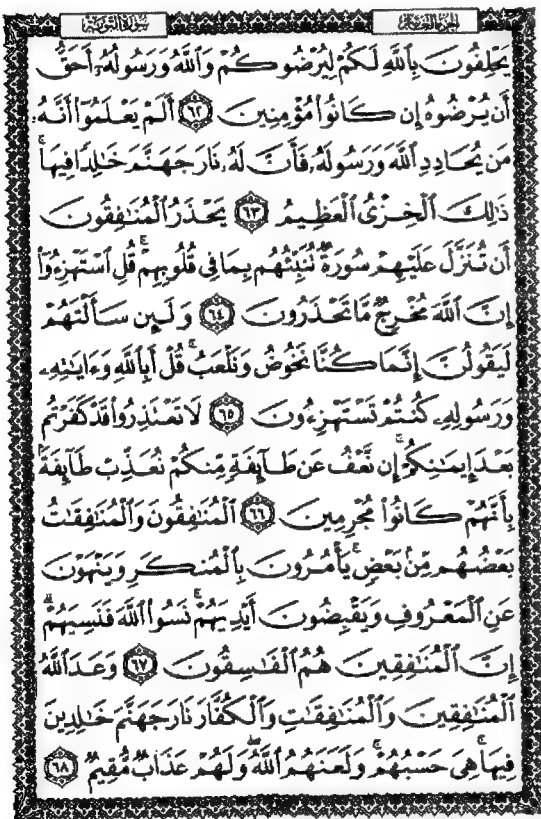 سورة التوبة
الجزء العاشر
يَحْلِفُونَ بِٱللَّهِ لَكُمْ لِيُرْضُوكُمْ وَٱللَّهُ وَرَسُولُهُۥٓ أَحَقُّ
أَن يُرْضُوهُ إِن كَانُوا۟ مُؤْمِنِينَ ٦٢ أَلَمْ يَعْلَمُوٓا۟ أَنَّهُۥ
مَن يُحَادِدِ ٱللَّهَ وَرَسُولَهُۥ فَأَنَّ لَهُۥ نَارَ جَهَنَّمَ خَٰلِدًا فِيهَا ۚ
ذَٰلِكَ ٱلْخِزْىُ ٱلْعَظِيمُ ٦٣ يَحْذَرُ ٱلْمُنَٰفِقُونَ
أَن تُنَزَّلَ عَلَيْهِمْ سُورَةٌ تُنَبِّئُهُم بِمَا فِى قُلُوبِهِمْ ۚ قُلِ ٱسْتَهْزِءُوٓا۟
إِنَّ ٱللَّهَ مُخْرِجٌ مَّا تَحْذَرُونَ ٦٤ وَلَئِن سَأَلْتَهُمْ
لَيَقُولُنَّ إِنَّمَا كُنَّا نَخُوضُ وَنَلْعَبُ ۚ قُلْ أَبِٱللَّهِ وَءَايَٰتِهِۦ
وَرَسُولِهِۦ كُنتُمْ تَسْتَهْزِءُونَ ٦٥ لَا تَعْتَذِرُوا۟ قَدْ كَفَرْتُم
بَعْدَ إِيمَٰنِكُمْ ۚ إِن نَّعْفُ عَن طَآئِفَةٍ مِّنكُمْ نُعَذِّبْ طَآئِفَةًۢ
بِأَنَّهُمْ كَانُوا۟ مُجْرِمِينَ ٦٦ ٱلْمُنَٰفِقُونَ وَٱلْمُنَٰفِقَٰتُ
بَعْضُهُم مِّنۢ بَعْضٍ ۚ يَأْمُرُونَ بِٱلْمُنكَرِ وَيَنْهَوْنَ
عَنِ ٱلْمَعْرُوفِ وَيَقْبِضُونَ أَيْدِيَهُمْ ۚ نَسُوا۟ ٱللَّهَ فَنَسِيَهُمْ ۗ
إِنَّ ٱلْمُنَٰفِقِينَ هُمُ ٱلْفَٰسِقُونَ ٦٧ وَعَدَ ٱللَّهُ
ٱلْمُنَٰفِقِينَ وَٱلْمُنَٰفِقَٰتِ وَٱلْكُفَّارَ نَارَ جَهَنَّمَ خَٰلِدِينَ
فِيهَا ۚ هِىَ حَسْبُهُمْ ۚ وَلَعَنَهُمُ ٱللَّهُ ۖ وَلَهُمْ عَذَابٌ مُّقِيمٌ ٦٨